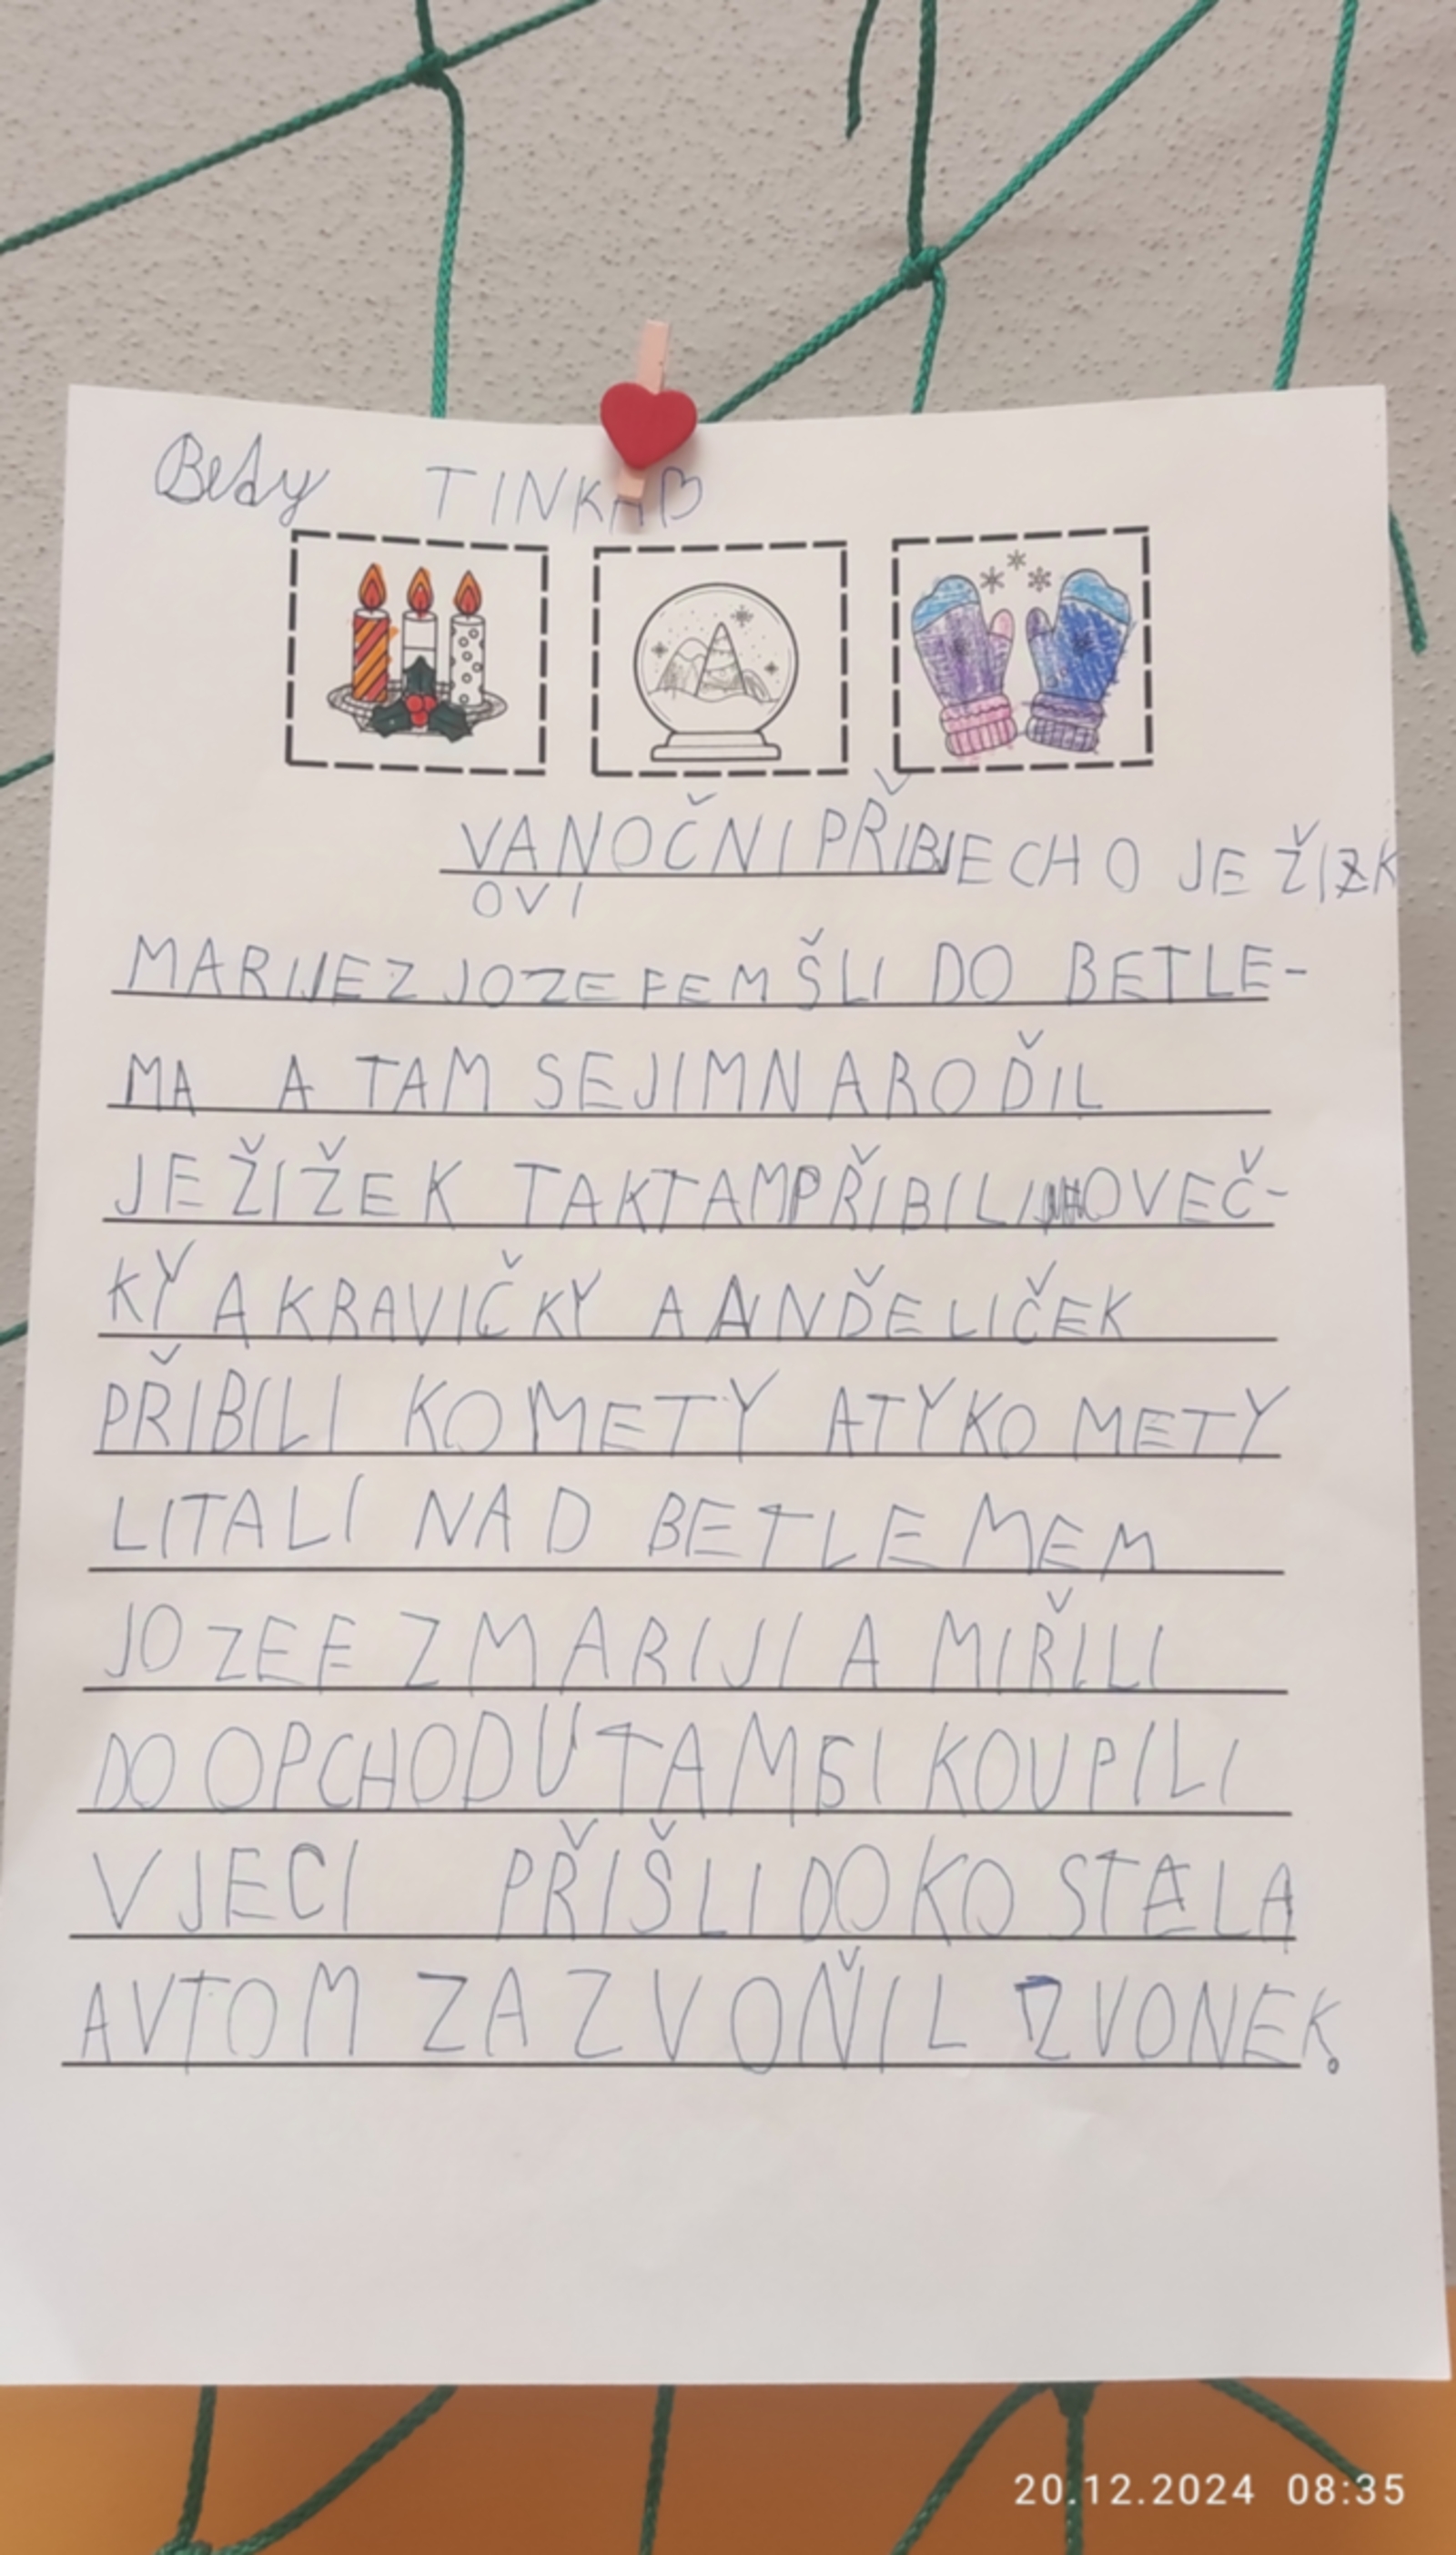 Bedy TINKA
VANOČNI PŘIBJECH O JEŽIZK
OVI
MARIJE Z JOZEFEM ŠLI DO BETLE-
MA A TAM SEJIMNAROĎIL
JEŽIŽEK TAKTAMPŘIBILI OVEČ-
KY A KRAVIČKY A ANĎELIČEK
PŘIBILI KOMETY ATYKOMETY
LITALI NAD BETLEMEM
JOZEF Z MARIJI A MIŘILI
DO OPCHODU TAMSI KOUPILI
VJECI PŘIŠLI DOKOSTELA
AVTOM ZAZVOŇIL ZVONEK.
20.12.2024 08:35